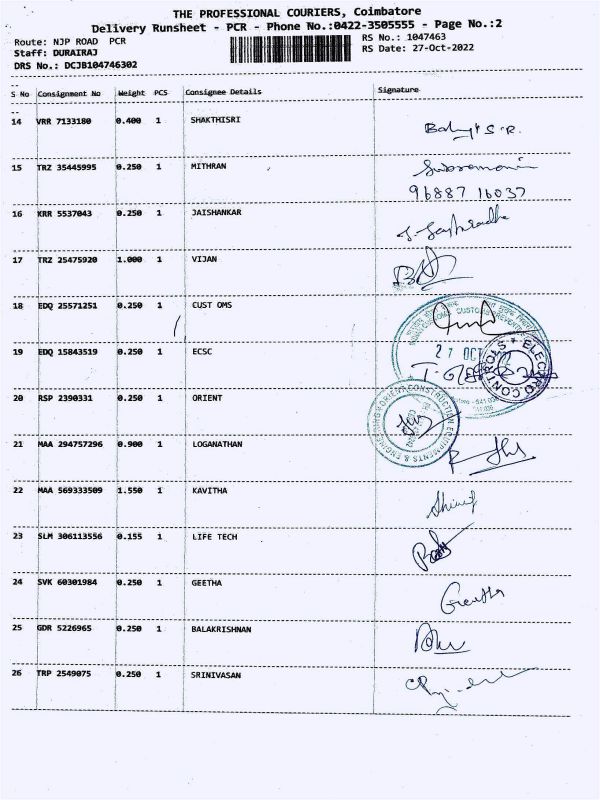 THE PROFESSIONAL COURIERS, Coimbatore
Delivery Runsheet - PCR - Phone No.:0422-3505555 - Page No.:2
Route: NJP ROAD PCR
RS No.: 1047463
Staff: DURAIRAJ
RS Date: 27-Oct-2022
DRS No.: DCJB104746302
S No Consignment No Weight PCS Consignee Details Signature
14 VRR 7133180 0.400 1 SHAKTHISRI
15 TRZ 35445995 0.250 1 MITHRAN
96887 16037
16 KRR 5537043 0.250 1 JAISHANKAR
17 TRZ 25475920 1.000 1 VIJAN
18 EDQ 25571251 0.250 1 CUST OMS
27 OCT
19 EDQ 15843519 0.250 1 ECSC
ELECTRO CONTROLS
20 RSP 2390331 0.250 1 ORIENT
ORIENT CONSTRUCTION EQUIPMENTS & ENGINEERING
21 MAA 294757296 0.900 1 LOGANATHAN
22 MAA 569333509 1.550 1 KAVITHA
23 SLM 306113556 0.155 1 LIFE TECH
24 SVK 60301984 0.250 1 GEETHA
Geetha
25 GDR 5226965 0.250 1 BALAKRISHNAN
26 TRP 2549075 0.250 1 SRINIVASAN